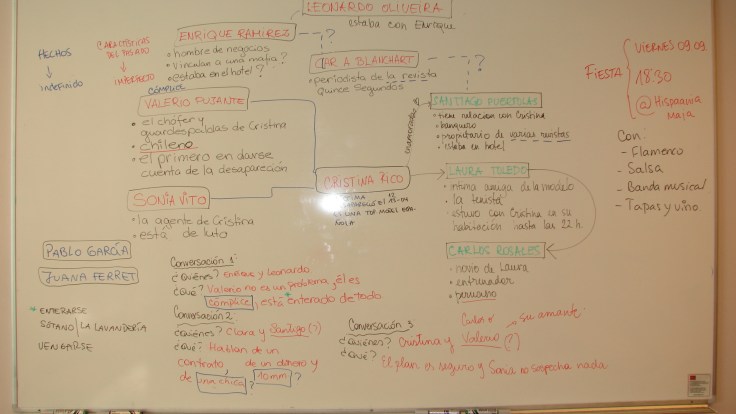 LEONARDO OLIVEIRA
estaba con Enrique
ENRIQUE RAMIREZ
• hombre de negocios
• vinculan a una mafia?
• estaba en el hotel?
HECHOS
↓
INDEFINIDO
CARACTERÍSTICAS
DEL PASADO
↓
IMPERFECTO
?
CLARA BLANCHART
• periodista de la revista
Quince Segundos
?
FIESTA
VIERNES 09.09
18:30
@Hispaania
Maja
Con:
- Flamenco
- Salsa
- Banda musical
- Tapas y vino.
cómplice
VALERIO PUJANTE
• el chófer y
guardespaldas de Cristina
• chileno
• el primero en darse
cuenta de la desaparición
SANTIAGO PUERTOLAS
• tiene relación con Cristina
• banquero
• propietario de varias revistas
• estaba en hotel
SONIA VITO
• la agente de Cristina
• está de luto
CRISTINA RICO
ES UNA TOP MODEL ESPA-
ÑOLA
LAURA TOLEDO
• íntima amiga de la modelo
• la tenista
• estuvo con Cristina en su
habitación hasta las 22 h.
CARLOS ROSALES
• novio de Laura
• entrenador
• peruano
PABLO GARCÍA
JUANA FERRET
* ENTERARSE
SÓTANO / LA LAVANDERÍA
VENGARSE
Conversación 1:
¿Quiénes? Enrique y Leonardo
¿Qué? Valerio no es un problema, él es
cómplice, está enterado de todo
Conversación 2
¿Quiénes? Clara y Santiago (?)
¿Qué? Hablan de un
contrato, de un dinero y
de una chica? 10 mm?
Conversación 3
¿Quiénes? Cristina y Valerio (?)
Carlos o su amante
¿Qué? El plan es seguro y Sonia no sospecha nada